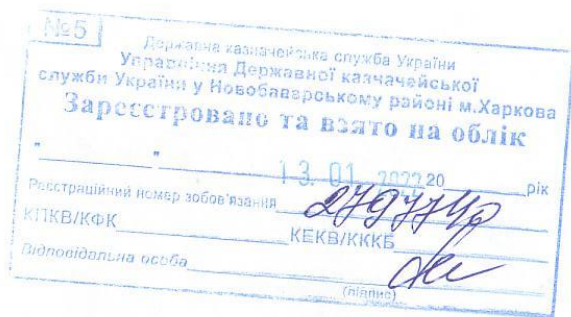 №5
Державна казначейська служба України
Управління Державної казначейської
служби України у Новобаварському районі м.Харкова
Зареєстровано та взято на облік
" " 13. 01. 2022 20 рік
Реєстраційний номер зобов'язання
КПКВ/КФК КЕКВ/КККБ
Відповідальна особа
(підпис)